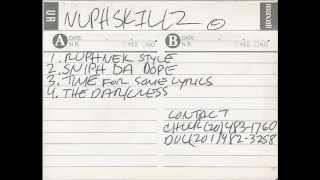 NUPHSKILLZ
maxell
UR
A DATE
N.R. YES NO
B DATE
N.R. YES NO
1. RUPHNEK STYLE
2. SNIPH DA DOPE
3. TIME FOR SOME LYRICS
4. THE DARKNESS
CONTACT
(201)483-1760
(201)482-3258